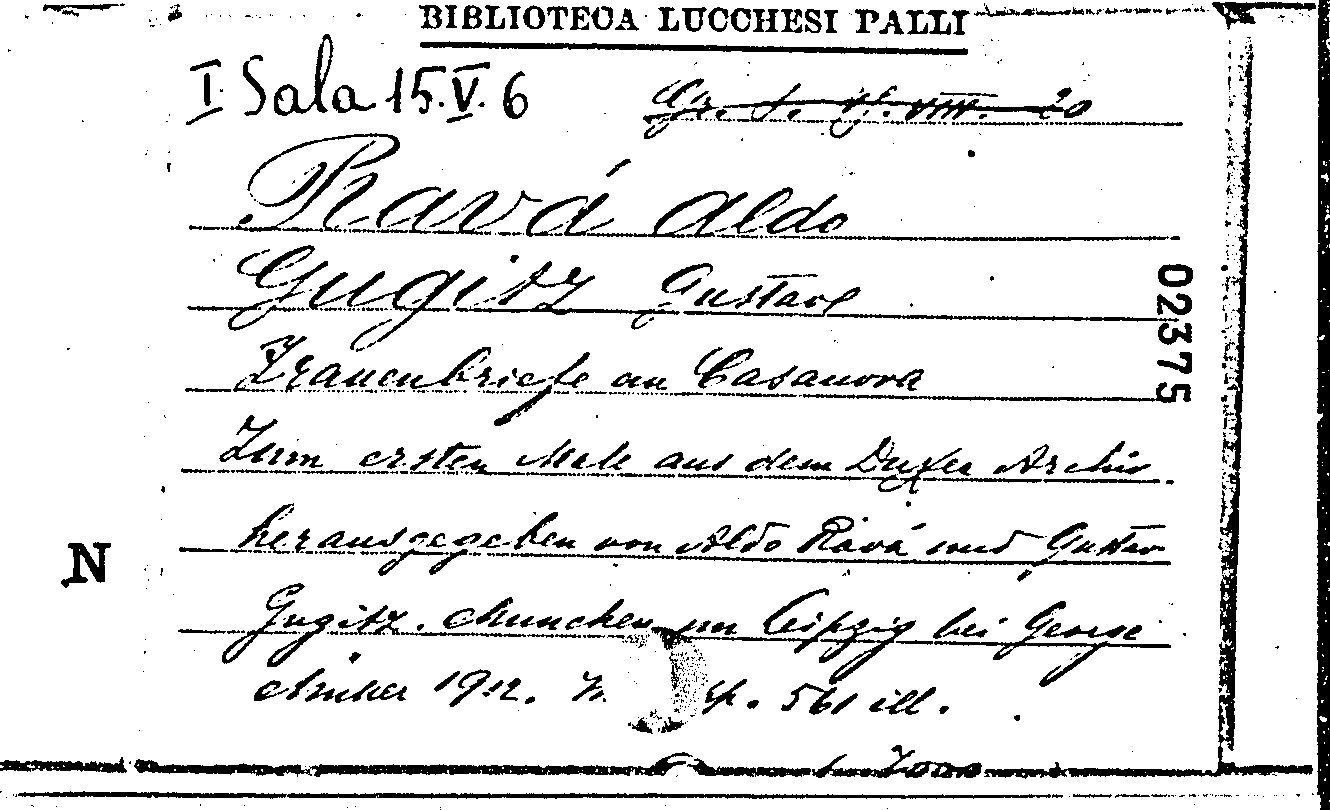 BIBLIOTECA LUCCHESI PALLI
I Sala 15.V.6
Gr. S. VIII. 20
Ravá Aldo
Gugitz Gustave
02375
Frauenbriefe an Casanova
Zum ersten Male aus dem Duxer Archiv
herausgegeben von Aldo Ravá und Gustav
N
Gugitz. München un Leipzig bei George
Müller 1912. p. 561 ill.